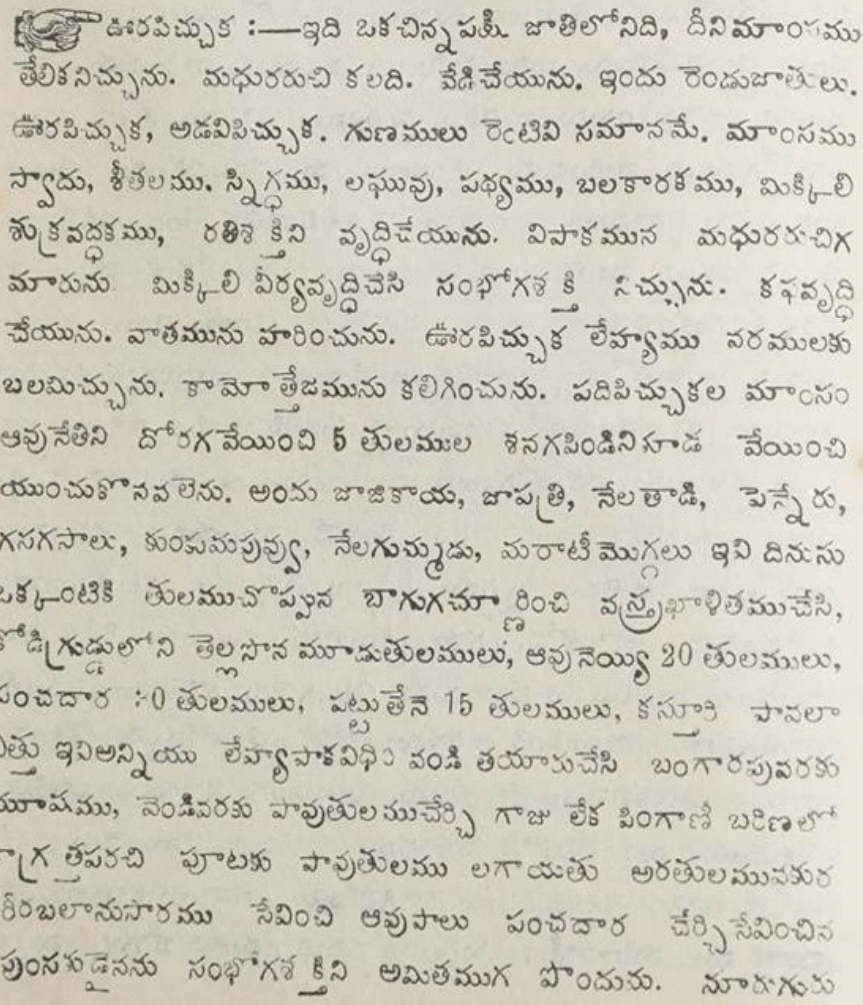 ఊరపిచ్చుక :—ఇది ఒకచిన్నపక్షి జాతిలోనిది, దీనిమాంసము
తేలికనిచ్చును. మధురరుచి కలది. వేడిచేయును. ఇందు రెండుజాతులు.
ఊరపిచ్చుక, అడవిపిచ్చుక. గుణములు రెంటివి సమానమే. మాంసము
స్వాదు, శీతలము. స్నిగ్ధము, లఘువు, పథ్యము, బలకారకము, మిక్కిలి
శుక్రవర్ధకము, రతిశక్తిని వృద్ధిచేయును. విపాకమున మధురరుచిగ
మారును. మిక్కిలి వీర్యవృద్ధిచేసి సంభోగశక్తి నిచ్చును. కఫవృద్ధి
చేయును. వాతమును హరించును. ఊరపిచ్చుక లేహ్యము నరములకు
బలమిచ్చును. కామోత్తేజమును కలిగించును. పదిపిచ్చుకల మాంసం
ఆవునేతిని దోరగవేయించి 5 తులముల శనగపిండినికూడ వేయించి
యుంచుకొనవలెను. అందు జాజికాయ, జాపత్రి, నేలతాడి, పెన్నేరు,
గసగసాలు, కుంకుమపువ్వు, నేలగుమ్ముడు, మరాటీమొగ్గలు ఇవి దినుసు
ఒక్కంటికి తులముచొప్పున బాగుగచూర్ణించి వస్త్రఖాళితముచేసి,
కోడిగ్రుడ్డులోని తెల్లసొన మూడుతులములు, ఆవునెయ్యి 20 తులములు,
పంచదార తులములు, పట్టుతేనె 15 తులములు, కస్తూరి పానలా
ఎత్తు ఇవిఅన్నియు లేహ్యపాకవిధిం వండి తయారుచేసి బంగారపురకు
మాషము, వెండివరకు పావుతులముచేర్చి గాజు లేక పింగాణీ బరిణలో
జాగ్రత్తపరచి పూటకు పావుతులము లగాయతు అరతులమువకుర
రీరబలానుసారము సేవించి ఆవుపాలు పంచదార చేర్చిసేవించిన
పుంసకుడైనను సంభోగశక్తిని అమితముగ పొందును. నూరుగురు